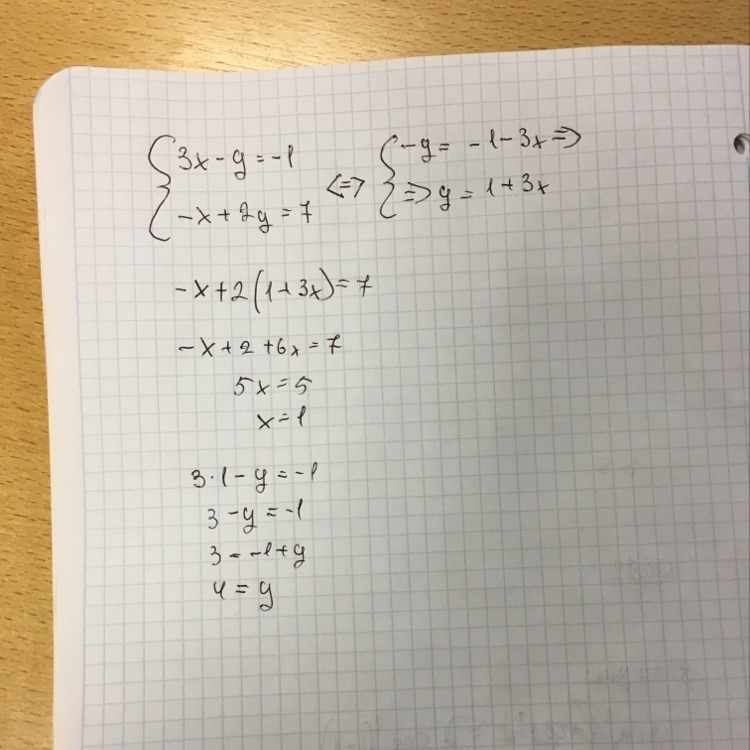 { 3x - y = -1
-x + 2y = 7
<=> { -y = -1 - 3x =>
=> y = 1 + 3x
-x + 2(1 + 3x) = 7
-x + 2 + 6x = 7
5x = 5
x = 1
3 · 1 - y = -1
3 - y = -1
3 = -1 + y
4 = y